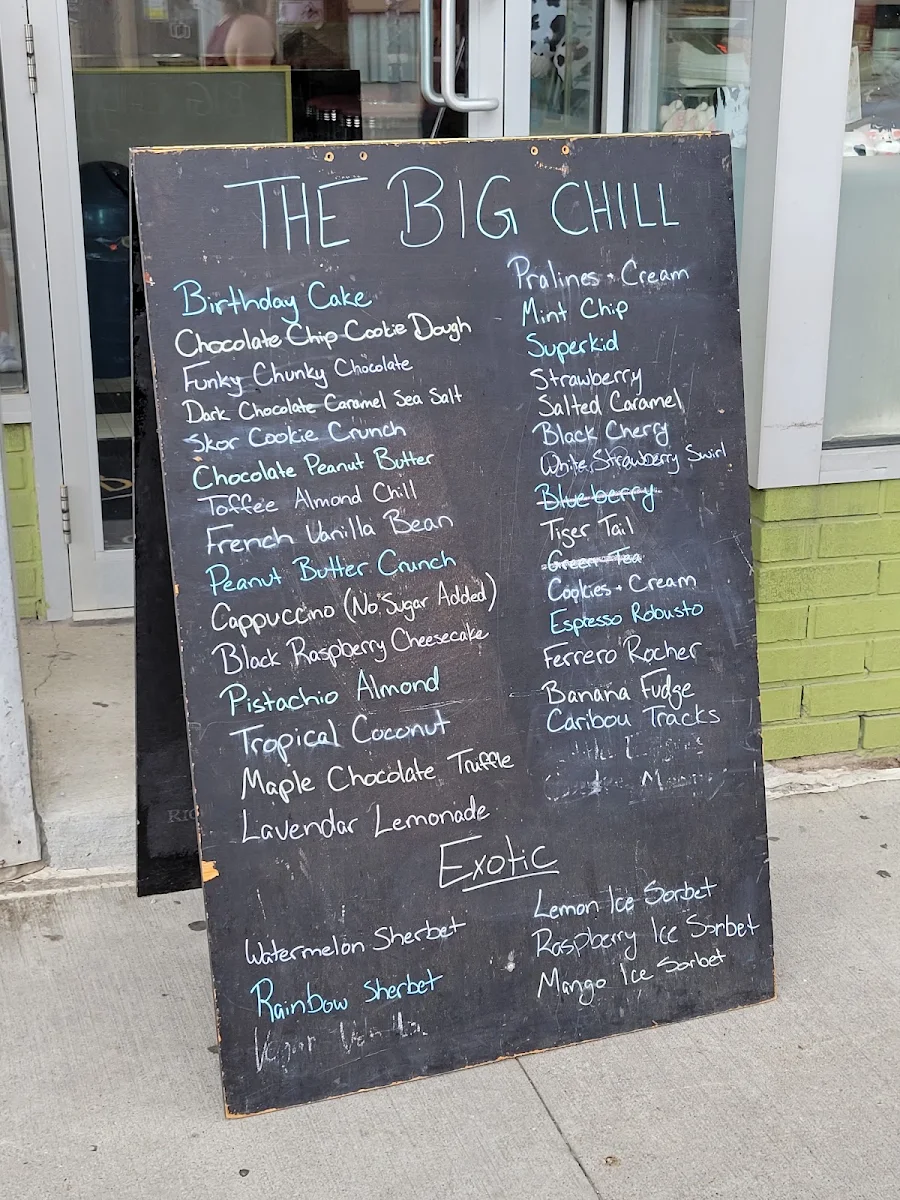 THE BIG CHILL
Birthday Cake
Chocolate Chip Cookie Dough
Funky Chunky Chocolate
Dark Chocolate Caramel Sea Salt
Skor Cookie Crunch
Chocolate Peanut Butter
Toffee Almond Chill
French Vanilla Bean
Peanut Butter Crunch
Cappuccino (No Sugar Added)
Black Raspberry Cheesecake
Pistachio Almond
Tropical Coconut
Maple Chocolate Truffle
Lavendar Lemonade
Pralines + Cream
Mint Chip
Superkid
Strawberry
Salted Caramel
Black Cherry
White Strawberry Swirl
Blueberry
Tiger Tail
Green Tea
Cookies + Cream
Espresso Robusto
Ferrero Rocher
Banana Fudge
Caribou Tracks
Exotic
Watermelon Sherbet
Rainbow Sherbet
Lemon Ice Sorbet
Raspberry Ice Sorbet
Mango Ice Sorbet